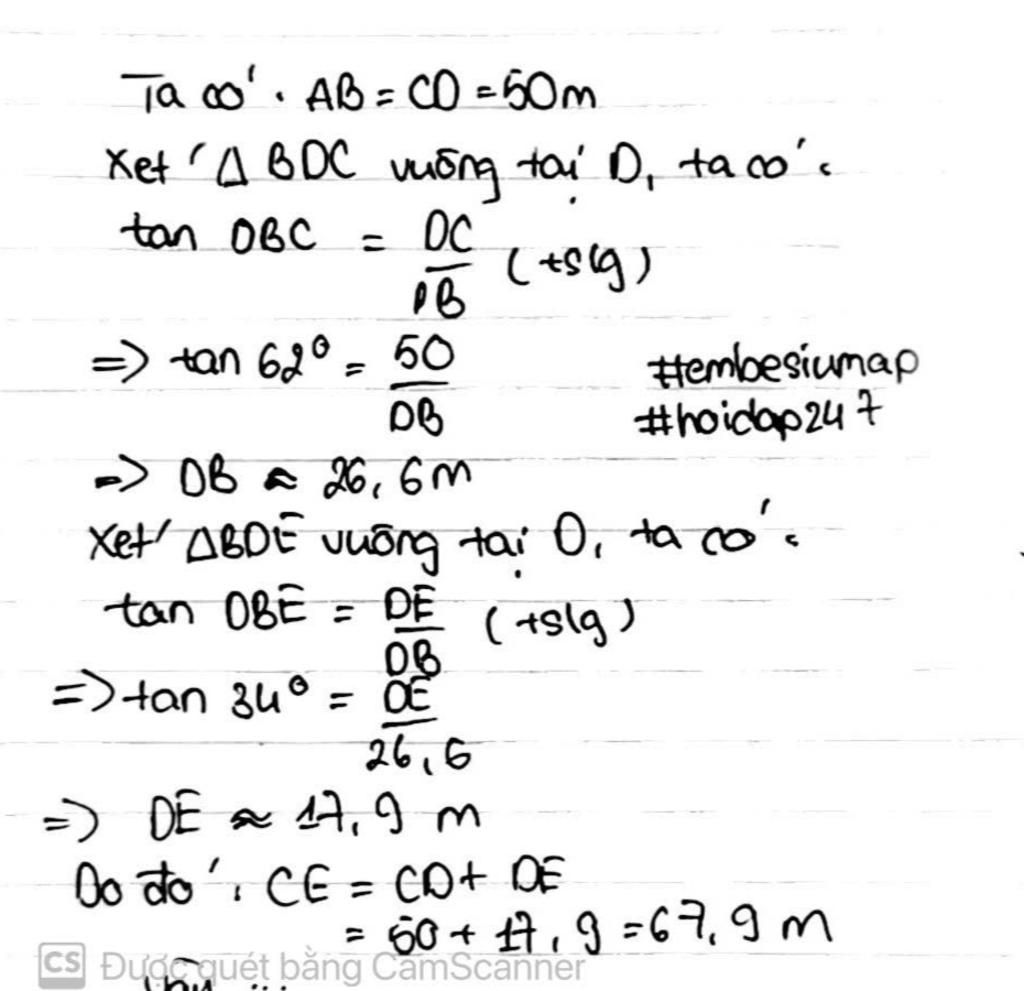 Ta có: AB = CD = 50m
Xét Δ BDC vuông tại D, ta có:
tan DBC = DC/DB (tslg)
=> tan 62° = 50/DB
#embesiumap
#hoidap247
=> DB ≈ 26,6m
Xét ΔBDE vuông tại D, ta có:
tan DBE = DE/DB (tslg)
=> tan 34° = DE/26,6
=> DE ≈ 17,9 m
Do đó: CE = CD + DE
= 50 + 17,9 = 67,9 m
CS Được quét bằng CamScanner